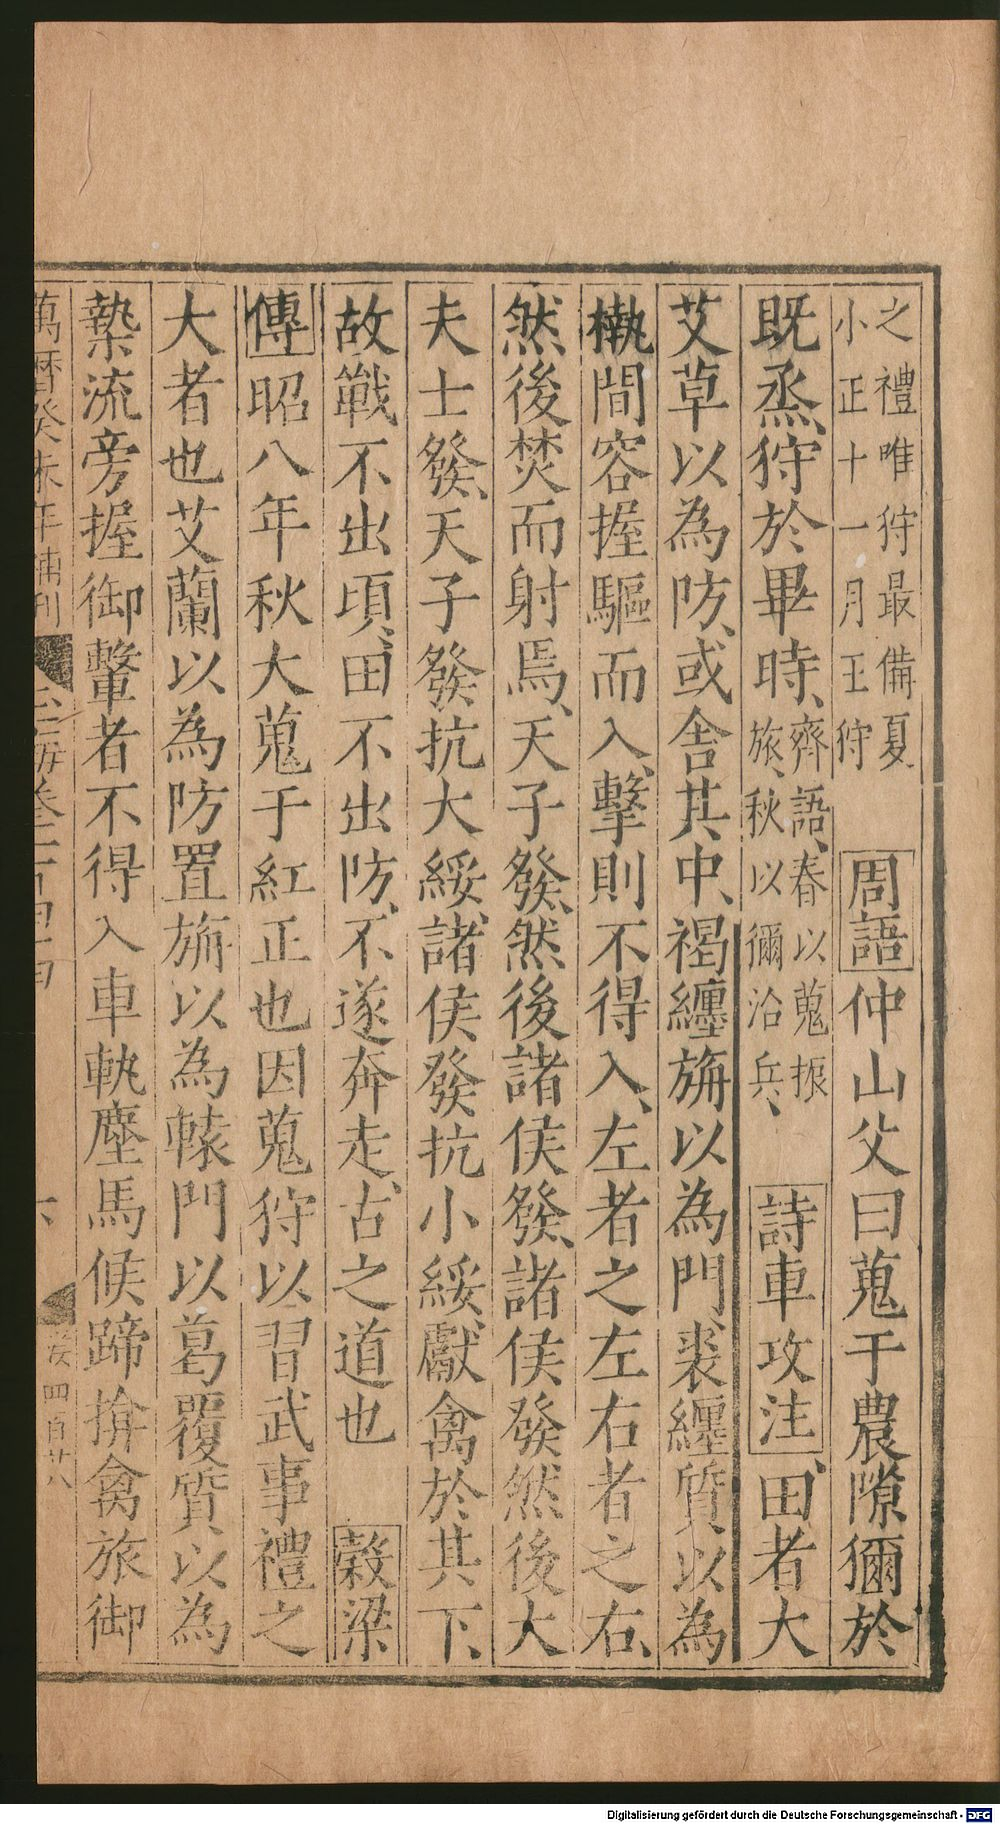 之禮唯狩最備夏
小正十一月王狩
周語仲山父曰蒐于農隙獮於
既烝狩於畢時齊語春以蒐振
旅秋以獮治兵
詩車攻注田者大
艾草以為防或舍其中褐纏旃以為門裘纏質以為
槷間容握驅而入擊則不得入左者之左右者之右
然後焚而射焉天子發然後諸侯發諸侯發然後大
夫士發天子發抗大綏諸侯發抗小綏獻禽於其下
故戰不出頃田不出防不逐奔走古之道也 穀梁
傳昭八年秋大蒐于紅正也因蒐狩以習武事禮之
大者也艾蘭以為防置旃以為轅門以葛覆質以為
槷流旁握御轚者不得入車軌塵馬候蹄揜禽旅御
萬曆癸未年補刊
六
四百廿八
Digitalisierung gefördert durch die Deutsche Forschungsgemeinschaft - DFG